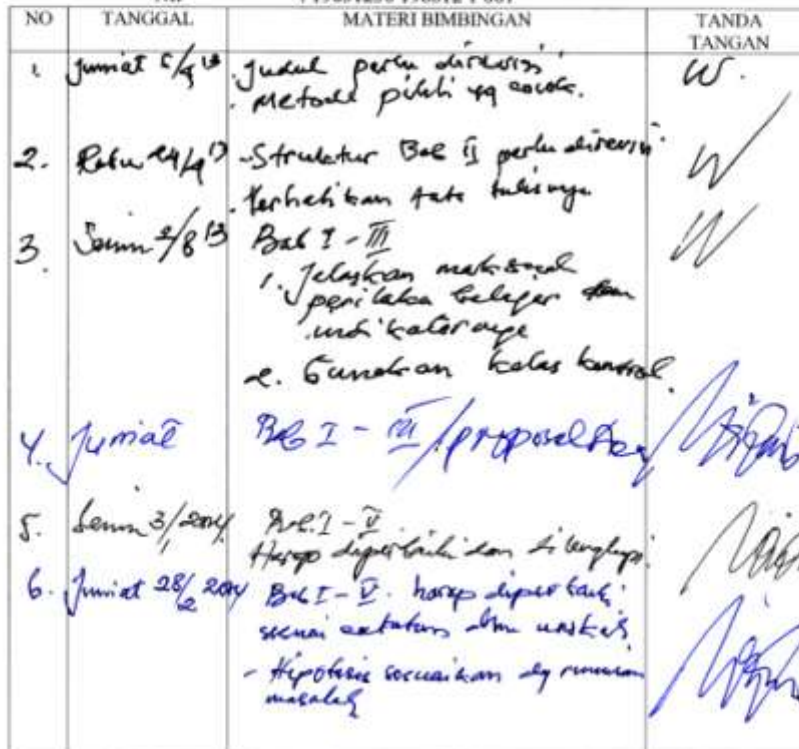 NO TANGGAL MATERI BIMBINGAN TANDA TANGAN
1. Jumiat . Judul perlu direvisi
. Metode pilih yg cocok.
2. Rabu 24/4 13 - Struktur Bab II perlu direvisi
. Perhatikan tata tulisnya
3. Senin 2/8 13 Bab I - III
1. Jelaskan maksud
perilaku belajar dan
indikatornya
2. Gunakan kelas kontrol.
4. Jumiat Bab I - III / proposal
5. Senin 3/ 2014 Bab I - V
Harap diperbaiki dan dilengkapi.
6. Jumiat 28/2 2014 Bab I - V. harap diperbaiki
sesuai catatan dlm naskah
- Hipotesis sesuaikan dg rumusan
masalah